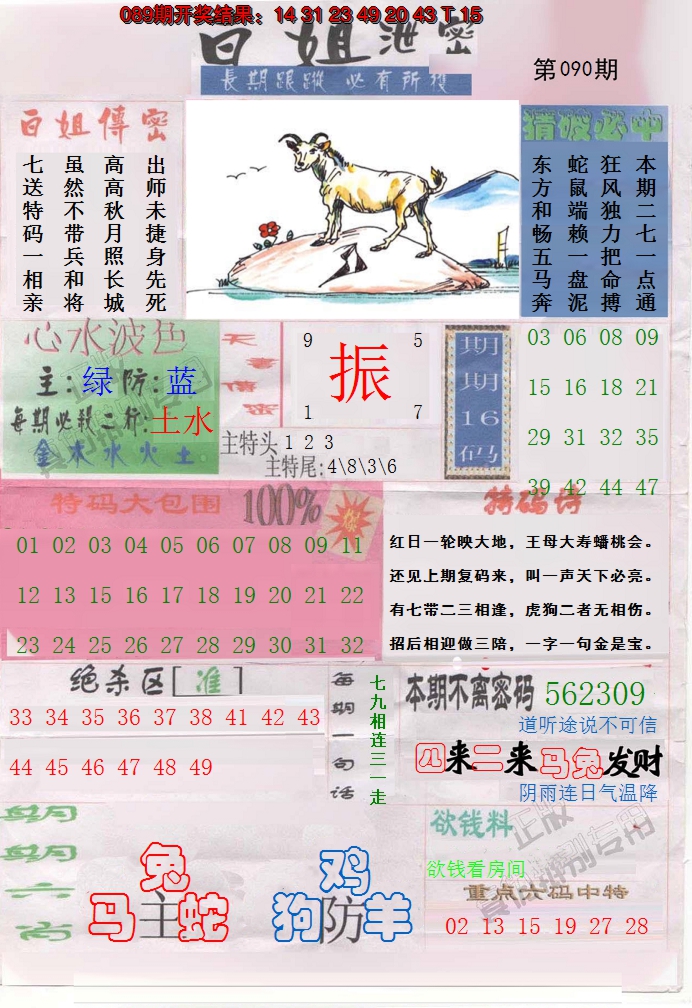 089期开奖结果：14 31 23 49 20 43 T 15
白姐泄密
第090期
長期跟蹤 必有所獲
白姐傳密
出师未捷身先死
高高秋月照长城
虽然不带兵和将
七送特码一相亲
猜波必中
本期二七一点通
狂风独力把命搏
蛇鼠端赖一盘泥
东方和畅五马奔
心水波色
主：绿 防：蓝
每期必殺二行：土水
金木水火土
9 5
振
1 7
主特头 1 2 3
主特尾：4\8\3\6
期期16码
03 06 08 09
15 16 18 21
29 31 32 35
39 42 44 47
特码大包围 100%
01 02 03 04 05 06 07 08 09 11
12 13 15 16 17 18 19 20 21 22
23 24 25 26 27 28 29 30 31 32
特码诗
红日一轮映大地，王母大寿蟠桃会。
还见上期复码来，叫一声天下必亮。
有七带二三相逢，虎狗二者无相伤。
招后相迎做三陪，一字一句金是宝。
绝杀区[准]
33 34 35 36 37 38 41 42 43
44 45 46 47 48 49
每期一句话
七九相连三一走
本期不离密码 562309
道听途说不可信
四来二来马兔发财
阴雨连日气温降
每期
每期
六
肖
兔
马主蛇
鸡
狗防羊
欲钱料
欲钱看房间
重点六码中特
02 13 15 19 27 28